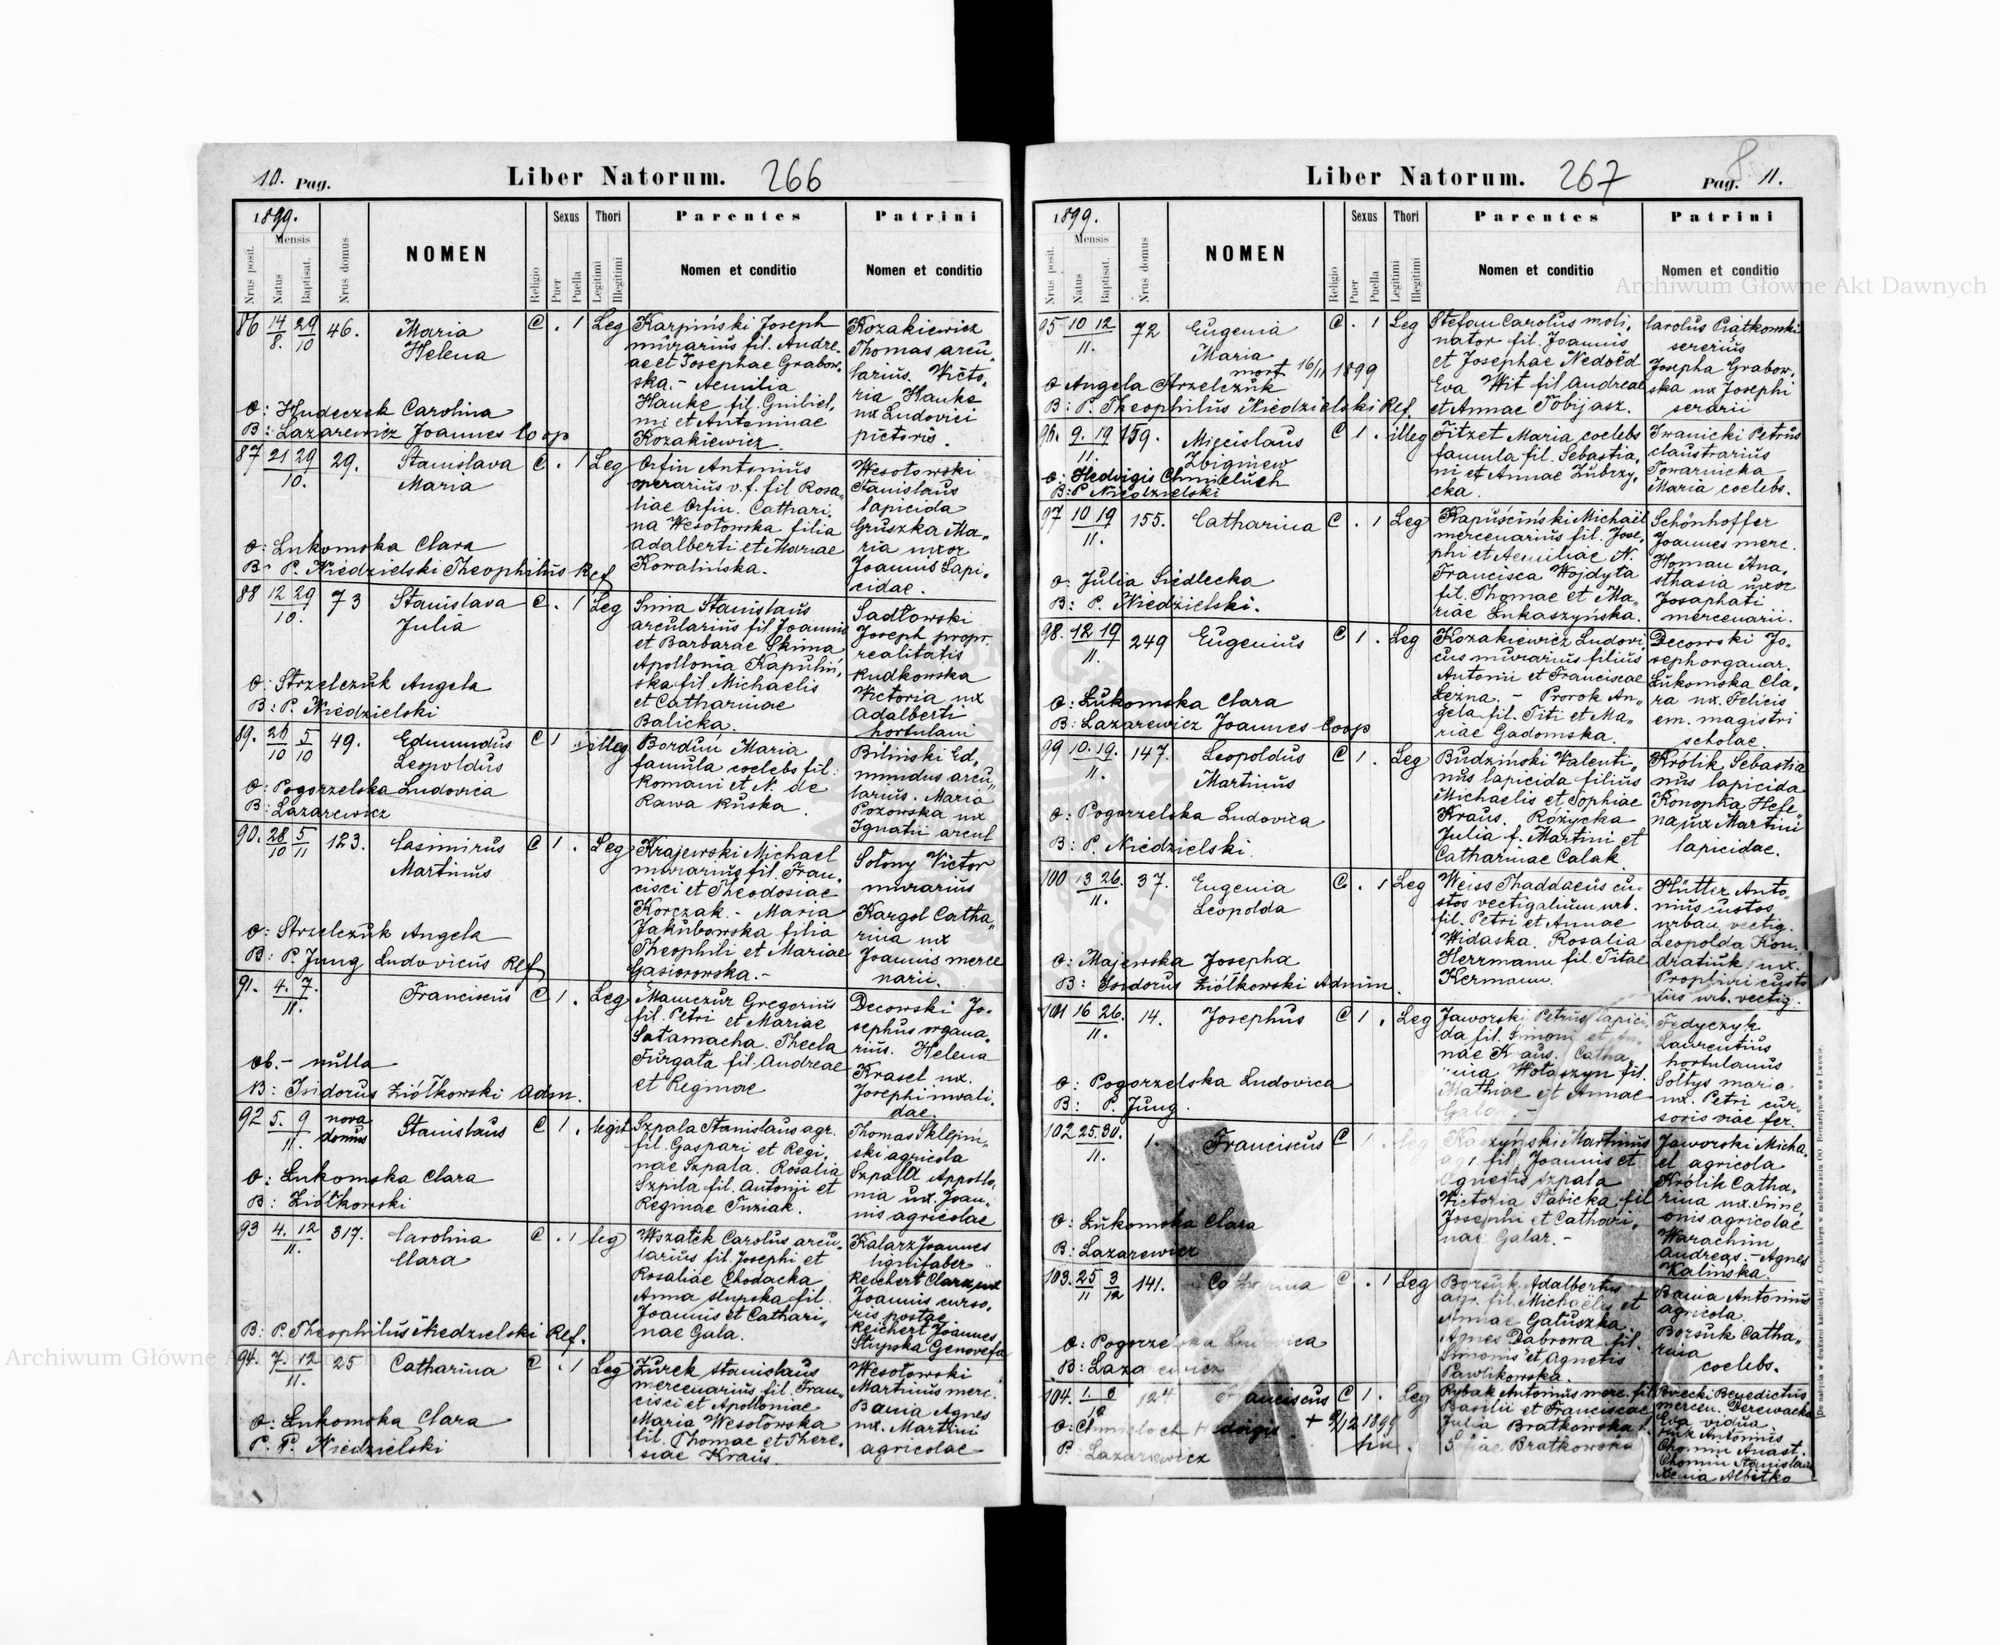 10. Pag. Liber Natorum. 266
1899.
Nrus posit.
Mensis
Natus
Baptisat.
Nrus domus
NOMEN
Religio
Sexus
Puer
Puella
Thori
Legitimi
Illegitimi
Parentes
Nomen et conditio
Patrini
Nomen et conditio
86 14/8. 29/10 46. Maria Helena C . 1 Leg
Karpiński Joseph
murarius fil. Andre-
ae et Josephae Grabow-
ska. - Aemilia
Hauke fil. Guiliel,
mi et Antoninae
Kozakiewicz
Kozakiewicz
Thomas arcu,
larius. Victo,
ria Hauke
ux Ludovici
pictoris.
O: Hudeczek Carolina
B: Lazarewicz Joannes Coop
87 21 29/10. 29. Stanislava Maria C . 1 Leg
Orfin Antonius
operarius v. f. fil Rosa,
liae Orfin. Cathari,
na Wesołowska filia
Adalberti et Mariae
Kowalińska.
Wesołowski
Stanislaus
lapicida
Gruszka Ma,
ria uxor
Joannis lapi,
cidae.
O: Łukomska Clara
B: P. Niedzielski Theophilus Ref
88 12 29/10. 73 Stanislava Julia C . 1 Leg
Stanislaus
arcularius fil Joannis
et Barbarae Skinna
Apollonia Kapuliń,
ska fil Michaelis
et Catharinae
Balicka.
Sadłowski
Joseph propr.
realitatis
Rudkowska
Victoria ux
Adalberti
hortulani
O: Strzelczuk Angela
B: P. Niedzielski
89. 26/10 5/10 49. Edmundus Leopoldus C 1 . illeg
Bordun Maria
famula coelebs fil:
Romani et N. de
Rawa Ruska.
Biliński Ed,
mundus arcu,
larius. Maria
Pozowska ux
Ignatii arcul
O: Pogorzelska Ludovica
B: Lazarewicz
90. 28/10 5/11 123. Casimirus Martinus C 1 . Leg
Krajewski Michael
murarius fil. Fran,
cisci et Theodosiae
Korczak. - Maria
Jakubowska filia
Theophili et Mariae
Gąsiorowska. -
Sołony Victor
murarius
Kargol Catha,
rina ux
Joannis merce
narii.
O: Strzelczuk Angela
B: P. Jung Ludovicus Ref
91. 4. 7./11. Franciscus C 1 . Leg
Mamczur Gregorius
fil. Petri et Mariae
Sałamacha. Thecla
Furgata fil. Andreae
et Reginae
Decowski Jo,
sephus organa,
rius. Helena
Krasel ux.
Josephi invali,
dae.
Ob. - nulla
B: Isidorus Ziółkowski Adm.
92 5. 9/11. nova domus Stanislaus C 1 . legit
Szpala Stanislaus agr.
fil. Gaspari et Regi,
nae Szpala. Rosalia
Szpila fil. Antonii et
Reginae Tuziak.
Thomas Sklepiń,
ski agricola
Szpalla Appollo,
nia ux. Joan,
nis agricolae
O: Łukomska Clara
B: Ziółkowski
93 4. 12/11. 317. Carolina Clara C . 1 leg
Wszałek Carolus arcu,
larius fil. Josephi et
Rosaliae Chodacka
Anna Słupska fil.
Joannis et Cathari,
nae Gala.
Kalarz Joannes
lignifaber
Reichert Clara ux
Joannis curso,
ris postae
Reichert Joannes,
Słupska Genovefa
B: P. Theophilus Niedzielski Ref.
94. 7. 12/11. 25 Catharina C . 1 Leg
Żurek Stanislaus
mercenarius fil. Fran,
cisci et Apolloniae
Maria Wesołowska
fil. Thomae et There,
siae Kraus.
Wesołowski
Martinus merc.
Bania Agnes
ux. Martini
agricolae
O: Łukomska Clara
P. P. Niedzielski
Liber Natorum. 267 8 Pag. 11.
1899.
Nrus posit.
Mensis
Natus
Baptisat.
Nrus domus
NOMEN
Religio
Sexus
Puer
Puella
Thori
Legitimi
Illegitimi
Parentes
Nomen et conditio
Patrini
Nomen et conditio
95 10 12/11. 72 Eugenia Maria C . 1 Leg
mort + 16/11 1899
Stefan Carolus moli,
nator fil. Joannis
et Josephae Nedvěd
Eva Wit fil Andreae
et Annae Tobijasz.
Carolus Piątkowski
sererius
Josepha Grabow,
ska ux Josephi
serarii
O Angela Strzelczuk
B: P. Theophilus Niedzielski Ref.
96. 9. 19/11. 159. Miecislaus Zbigniew C 1 . illeg
Titzet Maria coelebs
famula fil. Sebastia,
ni et Annae Zubrzy,
cka.
Iranicki Petrus
claustrarius
Towarnicka
Maria coelebs.
O: Hedvigis Chmieluch
B: P. Niedzielski
97 10 19/11. 155. Catharina C . 1 Leg
Kapuściński Michael
mercenarius fil. Jose,
phi et Aemiliae N.
Francisca Wojdyta
fil. Thomae et Ma,
riae Łukaszyńska.
Schönhoffer
Joannes merc.
Homan Ana,
sthasia uxor
Josaphati
mercenarii.
O. Julia Siedlecka
B: P. Niedzielski.
98. 12. 19/11. 249 Eugenius C 1 . Leg
Kozakiewicz Ludovi,
cus murarius filius
Antonii et Franciscae
Leżna. - Prorok An,
gela fil. Titi et Ma,
riae Gadomska.
Decowski Jo,
seph organar.
Łukomska Cla,
ra ux. Felicis
em. magistri
scholae.
O: Łukomska Clara
B: Lazarewicz Joannes Coop
99 10. 19./11. 147. Leopoldus Martinus C 1 . Leg
Budziński Valenti,
nus lapicida filius
Michaelis et Sophiae
Kraus. Różycka
Julia f. Martini et
Catharinae Calak.
Królik Sebastia
nus lapicida
Konopka Hele
na ux Martini
lapicidae.
O: Pogorzelska Ludovica
B: P. Niedzielski.
100 13 26./11. 37. Eugenia Leopolda C. . 1 Leg
Weiss Thaddaeus cu,
stos vectigalium urb.
fil. Petri et Annae
Widaska. Rosalia
Herrmann fil. Titae
Kermann.
Hütter Anto,
nius custos
urban vectig.
Leopolda Kon,
dratiuk ux.
Prophiri custo
dis urb. vectig:
O: Majewska Josepha
B: Isidorus Ziółkowski Admin.
101 16 26./11. 14. Josephus C 1 . Leg
Jaworski Petrus lapici,
da fil. Simoni et An,
nae Kraus. Catha,
rina Wołaszyn fil.
Mathiae et Annae
Gala. -
Fedyczyk
Laurentius
hortulanus
Sołtys Maria
ux. Petri cur,
soris viae fer.
O: Pogorzelska Ludovica
B: P. Jung.
102 25. 30./11. 1. Franciscus C 1 . leg
Kaczyński Martinus
agr. fil. Joannis et
Agnetis Szpala
Victoria Słabicka fil
Josephi et Cathari,
nae Galar. -
Jaworski Micha,
el agricola
Królik Catha,
rina ux. Sime,
onis agricolae
Warachim
Andreas. - Agnes
Kalinska.
O: Łukomska Clara
B: Lazarewicz
103. 25/11 3/12 141. Catharina C . 1 Leg
Borsuk Adalbertus
agr. fil. Michaelis et
Annae Gałuszka.
Agnes Dąbrowa fil.
Simonis et Agnetis
Pawlikowska.
Bania Antonius
agricola.
Borsuk Catha,
rina
coelebs.
O: Pogorzelska Ludovica
B: Lazarewicz
104. 1. 6/12 124 Franciscus C 1 . Leg
+ 9/12 1899
Rybak Antonius merc. fil
Basilii et Franciscae
Julia Bratkowska f.
Sofiae Bratkowska
Birecki Benedictus
mercen. Derewacka
Eva vidua.
Antonius
Chomin Anast.
Chomin Stanislaus
Xenia Albitko
O: Chmieloch Hedvigis
P: Lazarewicz
Archiwum Główne Akt Dawnych
Archiwum Główne Akt Dawnych